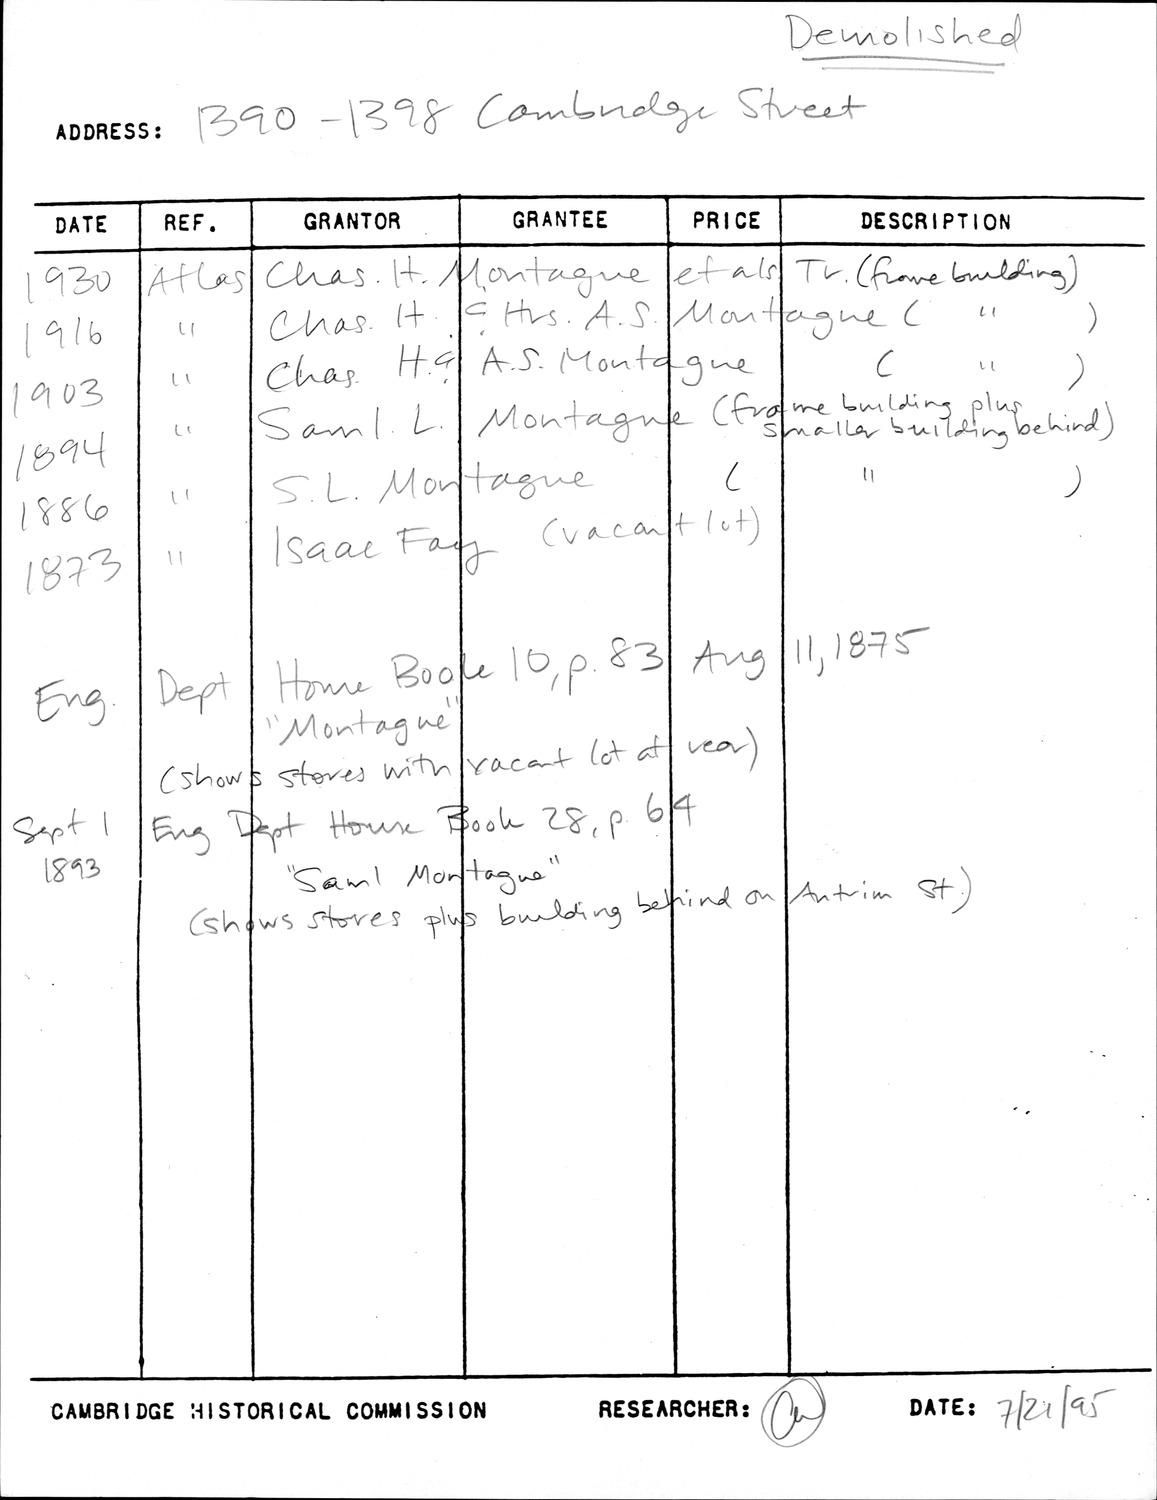 Demolished
ADDRESS: 1390-1398 Cambridge Street
DATE REF. GRANTOR GRANTEE PRICE DESCRIPTION
1930 Atlas Chas. H. Montague et als Tr. (frame building)
1916 " Chas. H. & Hrs. A.S. Montague ( " )
1903 " Chas. H. & A.S. Montague ( " )
1894 " Saml. L. Montague (frame building plus
smaller building behind)
1886 " S.L. Montague ( " )
1873 " Isaac Fay (vacant lot)
Eng. Dept House Book 10, p. 83 Aug 11, 1875
"Montague"
(shows stores with vacant lot at rear)
Sept 1 Eng Dept House Book 28, p. 64
1893
"Saml Montague"
(shows stores plus building behind on Antrim St.)
CAMBRIDGE HISTORICAL COMMISSION RESEARCHER: DATE: 7/21/95